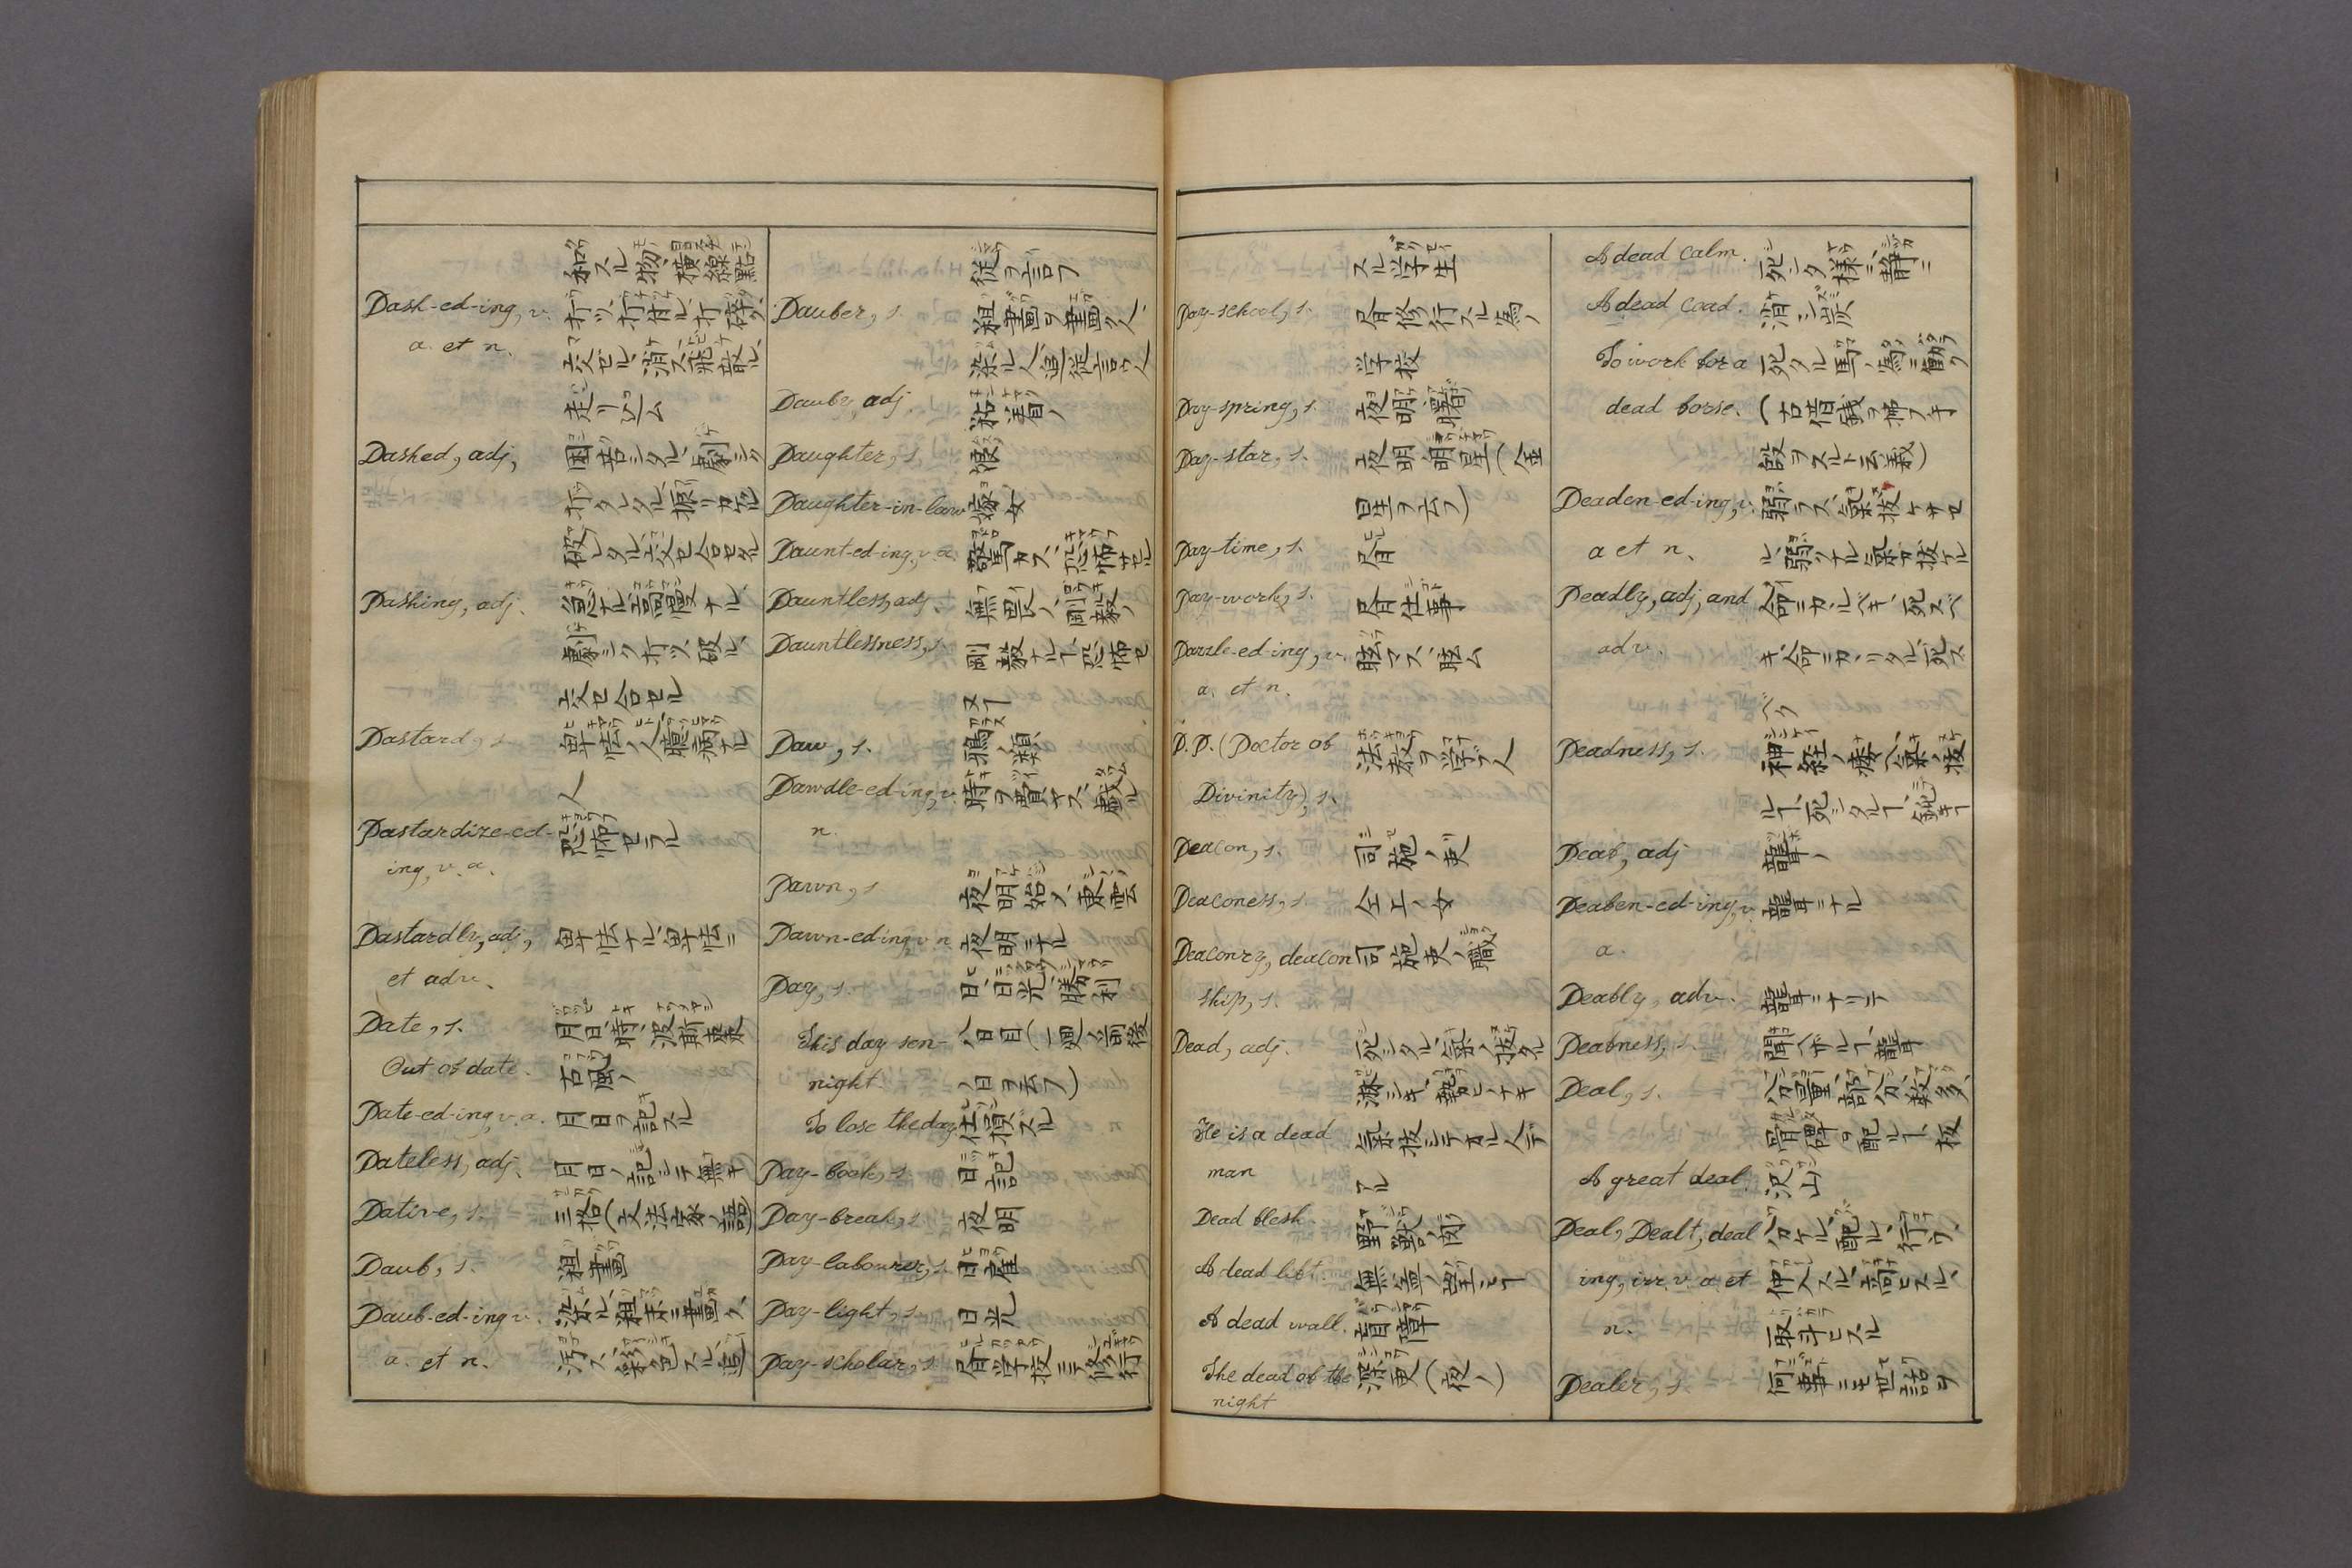 和スル物、横線點
Dash-ed-ing, v. 打ツ、打付ル、打碎ク、
a. et n. 交ゼル、消ス、飛散ル、
走リ込ム
Dashed, adj, 困苦シタル、劇シク
打タレタル、振リカケル
破レタル、交セ合セタル
Dashing, adj. 怠ナル、高慢ナル、
劇シク打ツ、破ル、
交セ合セル
Dastard, s. 卑怯ノ人、臆病ナル
人
Dastardize-ed- 恐怖セラル
ing, v. a.
Dastardly, adj, 卑怯ナル、卑怯ニ
et adv.
Date, s. 月日、時、波斯棗
Out of date. 古風ノ
Date-ed-ing, v. a. 月日ヲ記スル
Dateless, adj. 月日ノ記シテ無キ
Dative, s. 三格(文法家ノ語)
Daub, s. 粗畫
Daub-ed-ing v. 塗ル、粗末ニ畫ク、
a. et n. 汚ス、彩色スル、追
従ヲ言フ
Dauber, s. 粗畫ヲ畫ク人、
塗ル人、追従言ウ人
Dauby, adj. 粘着ノ
Daughter, s. 娘
Daughter-in-law 嫁女
Daunt-ed-ing, v a. 驚カス、恐怖サセル
Dauntless, adj. 無畏ノ、剛毅ノ
Dauntlessness, s. 剛毅ナルヿ、恐怖セ
ヌヿ
Daw, s. 鴉ノ類
Dawdle-ed-ing, v. 時ヲ費ヤス、戯ル
n.
Dawn, s. 夜明始メ、東雲
Dawn-ed-ing v n 夜明ニナル
Day, s. 日、日光、勝利
This day sen- 八日目(一週ノ前後
night ノ日ヲ云フ)
To lose the day 仕損ズル
Day-book, s. 日記
Day-break, s. 夜明
Day-labourer, s. 日雇
Day-light, s. 日光
Day-scholar, s. 昼学校ニテ修行
スル学生
Day-school, s. 昼修行スル為ノ
学校
Day-spring, s. 夜明、曙
Day-star, s. 夜明ノ明星(金
星ヲ云フ)
Day-time, s. 昼
Day-work, s. 昼仕事
Dazzle-ed-ing, v. 眩マス、眩ム
a. et n.
D.D. (Doctor of 法教ヲ学ブ人
Divinity), s.
Deacon, s. 司施ノ吏
Deaconess, s. 仝上ノ女
Deaconry, deacon 司施吏ノ職
ship, s.
Dead, adj. 死シタル、氣ノ抜タル
淋シキ、勢ヒナキ
He is a dead 氣抜シテオル人デ
man アル
Dead flesh. 野獣ノ肉
A dead lift. 無益ノ望ミヿ
A dead wall. 盲障
The dead of the 深更(夜ノ)
night
A dead calm. 死シタ様ニ静ニ
A dead coad. 消シ炭
To work for a 死タル馬ノ為ニ働ラク
dead horse. (古借銭ヲ拂フ手
段ヲスルト云義)
Deaden-ed-ing, v. 弱ラス、氣抜ケサセ
a et n. ル、弱ソナル、氣ガ抜ケル
Deadly, adj, and 命ニカヽルベキ、死スベ
adv. キ、命ニカヽリタル、死ス
ベク
Deadness, s. 神経ノ痿ヘ、氣ノ抜
ルヿ、死シタルヿ、鈍キヿ
Deaf, adj 聾ノ
Deafen-ed-ing, v. 聾ニナル
a.
Deafly, adv. 聾ニナリテ
Deafness, s. 聞ヘザルヿ、聾
Deal, s. 分量、部分、数多、
骨牌ヲ配ルヿ、板
A great deal. 沢山
Deal, Dealt, deal 分ケル、配ル、行フ、
ing, irr. v. a. et 仲人スル、商ヒスル、
n. 取斗ヒスル
Dealer, s. 何事ニモ世話ヲ